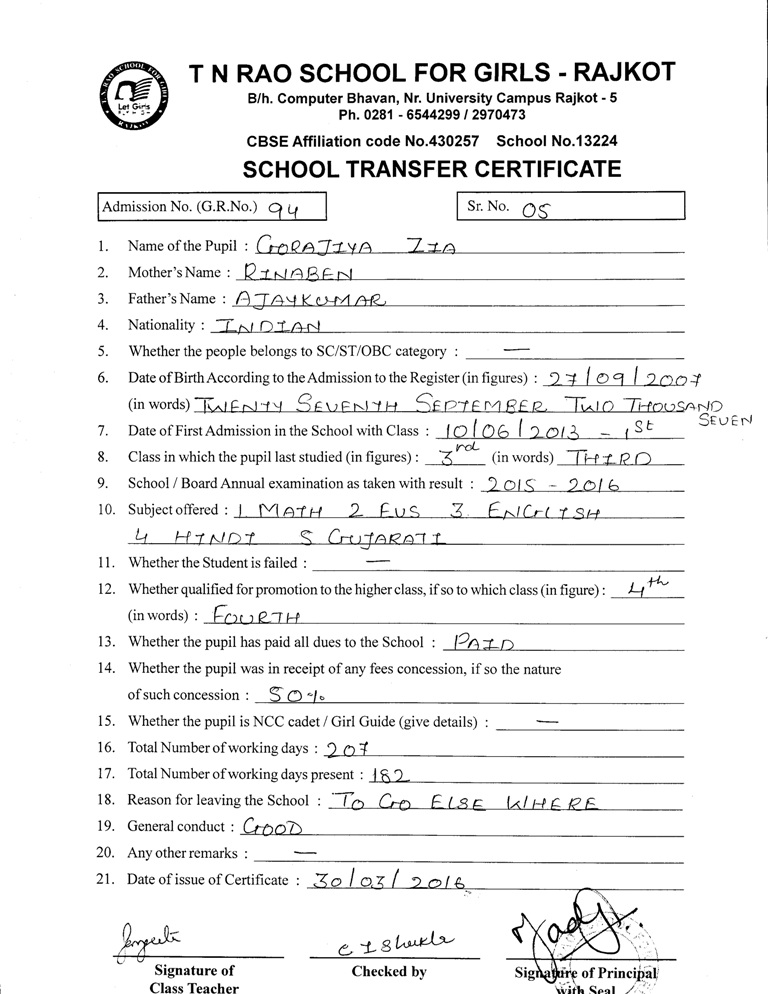 T N RAO SCHOOL FOR GIRLS - RAJKOT
B/h. Computer Bhavan, Nr. University Campus Rajkot - 5
Ph. 0281 - 6544299 / 2970473
CBSE Affiliation code No.430257 School No.13224
SCHOOL TRANSFER CERTIFICATE
T. N. RAO SCHOOL FOR GIRLS
Let Girls
RAJKOT
Admission No. (G.R.No.) 94 Sr. No. 05
1. Name of the Pupil : GORAJIYA ZIA
2. Mother's Name : RINABEN
3. Father's Name : AJAYKUMAR
4. Nationality : INDIAN
5. Whether the people belongs to SC/ST/OBC category : —
6. Date of Birth According to the Admission to the Register (in figures) : 27/09/2007
(in words) TWENTY SEVENTH SEPTEMBER TWO THOUSAND
SEVEN
7. Date of First Admission in the School with Class : 10/06/2013 - 1st
8. Class in which the pupil last studied (in figures) : 3rd (in words) THIRD
9. School / Board Annual examination as taken with result : 2015 - 2016
10. Subject offered : 1 MATH 2 EVS 3 ENGLISH
4 HINDI 5 GUJARATI
11. Whether the Student is failed : —
12. Whether qualified for promotion to the higher class, if so to which class (in figure) : 4th
(in words) : FOURTH
13. Whether the pupil has paid all dues to the School : PAID
14. Whether the pupil was in receipt of any fees concession, if so the nature
of such concession : 50%
15. Whether the pupil is NCC cadet / Girl Guide (give details) : —
16. Total Number of working days : 207
17. Total Number of working days present : 182
18. Reason for leaving the School : TO GO ELSE WHERE
19. General conduct : GOOD
20. Any other remarks : —
21. Date of issue of Certificate : 30/03/2016
C I Shukla
Signature of Checked by Signature of Principal
Class Teacher with Seal